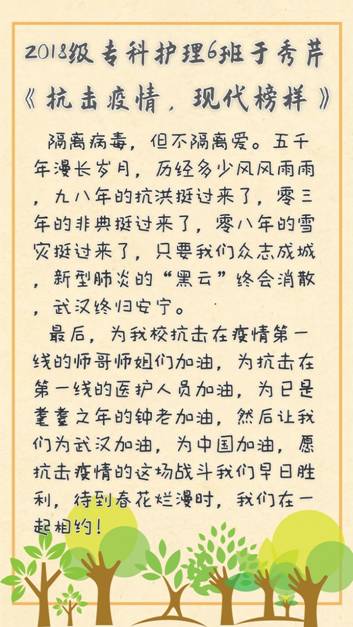 2018级专科护理6班于秀芹
《抗击疫情，现代榜样》
隔离病毒，但不隔离爱。五千
年漫长岁月，历经多少风风雨雨
，九八年的抗洪挺过来了，零三
年的非典挺过来了，零八年的雪
灾挺过来了，只要我们众志成城
，新型肺炎的“黑云”终会消散
，武汉终归安宁。
最后，为我校抗击在疫情第一
线的师哥师姐们加油，为抗击在
第一线的医护人员加油，为已是
耄耋之年的钟老加油，然后让我
们为武汉加油，为中国加油，愿
抗击疫情的这场战斗我们早日胜
利，待到春花烂漫时，我们在一
起相约！